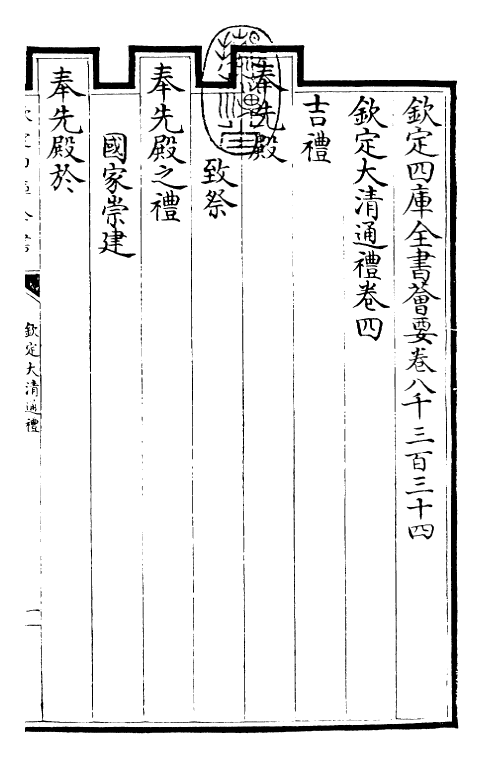 欽定四庫全書薈要卷八千三百三十四
欽定大清通禮卷四
吉禮
奉先殿
致祭
奉先殿之禮
國家崇建
奉先殿於
欽定大清通禮